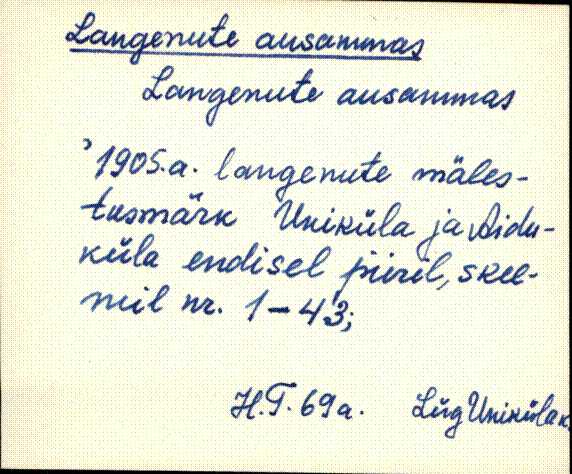 Langenute ausammas
Langenute ausammas
'1905.a. langenute mäles-
tusmärk Uniküla ja Aidu-
küla endisel piiril, skee-
mil nr. 1-43;
H.T. 69a. Lüg Uniküla k.